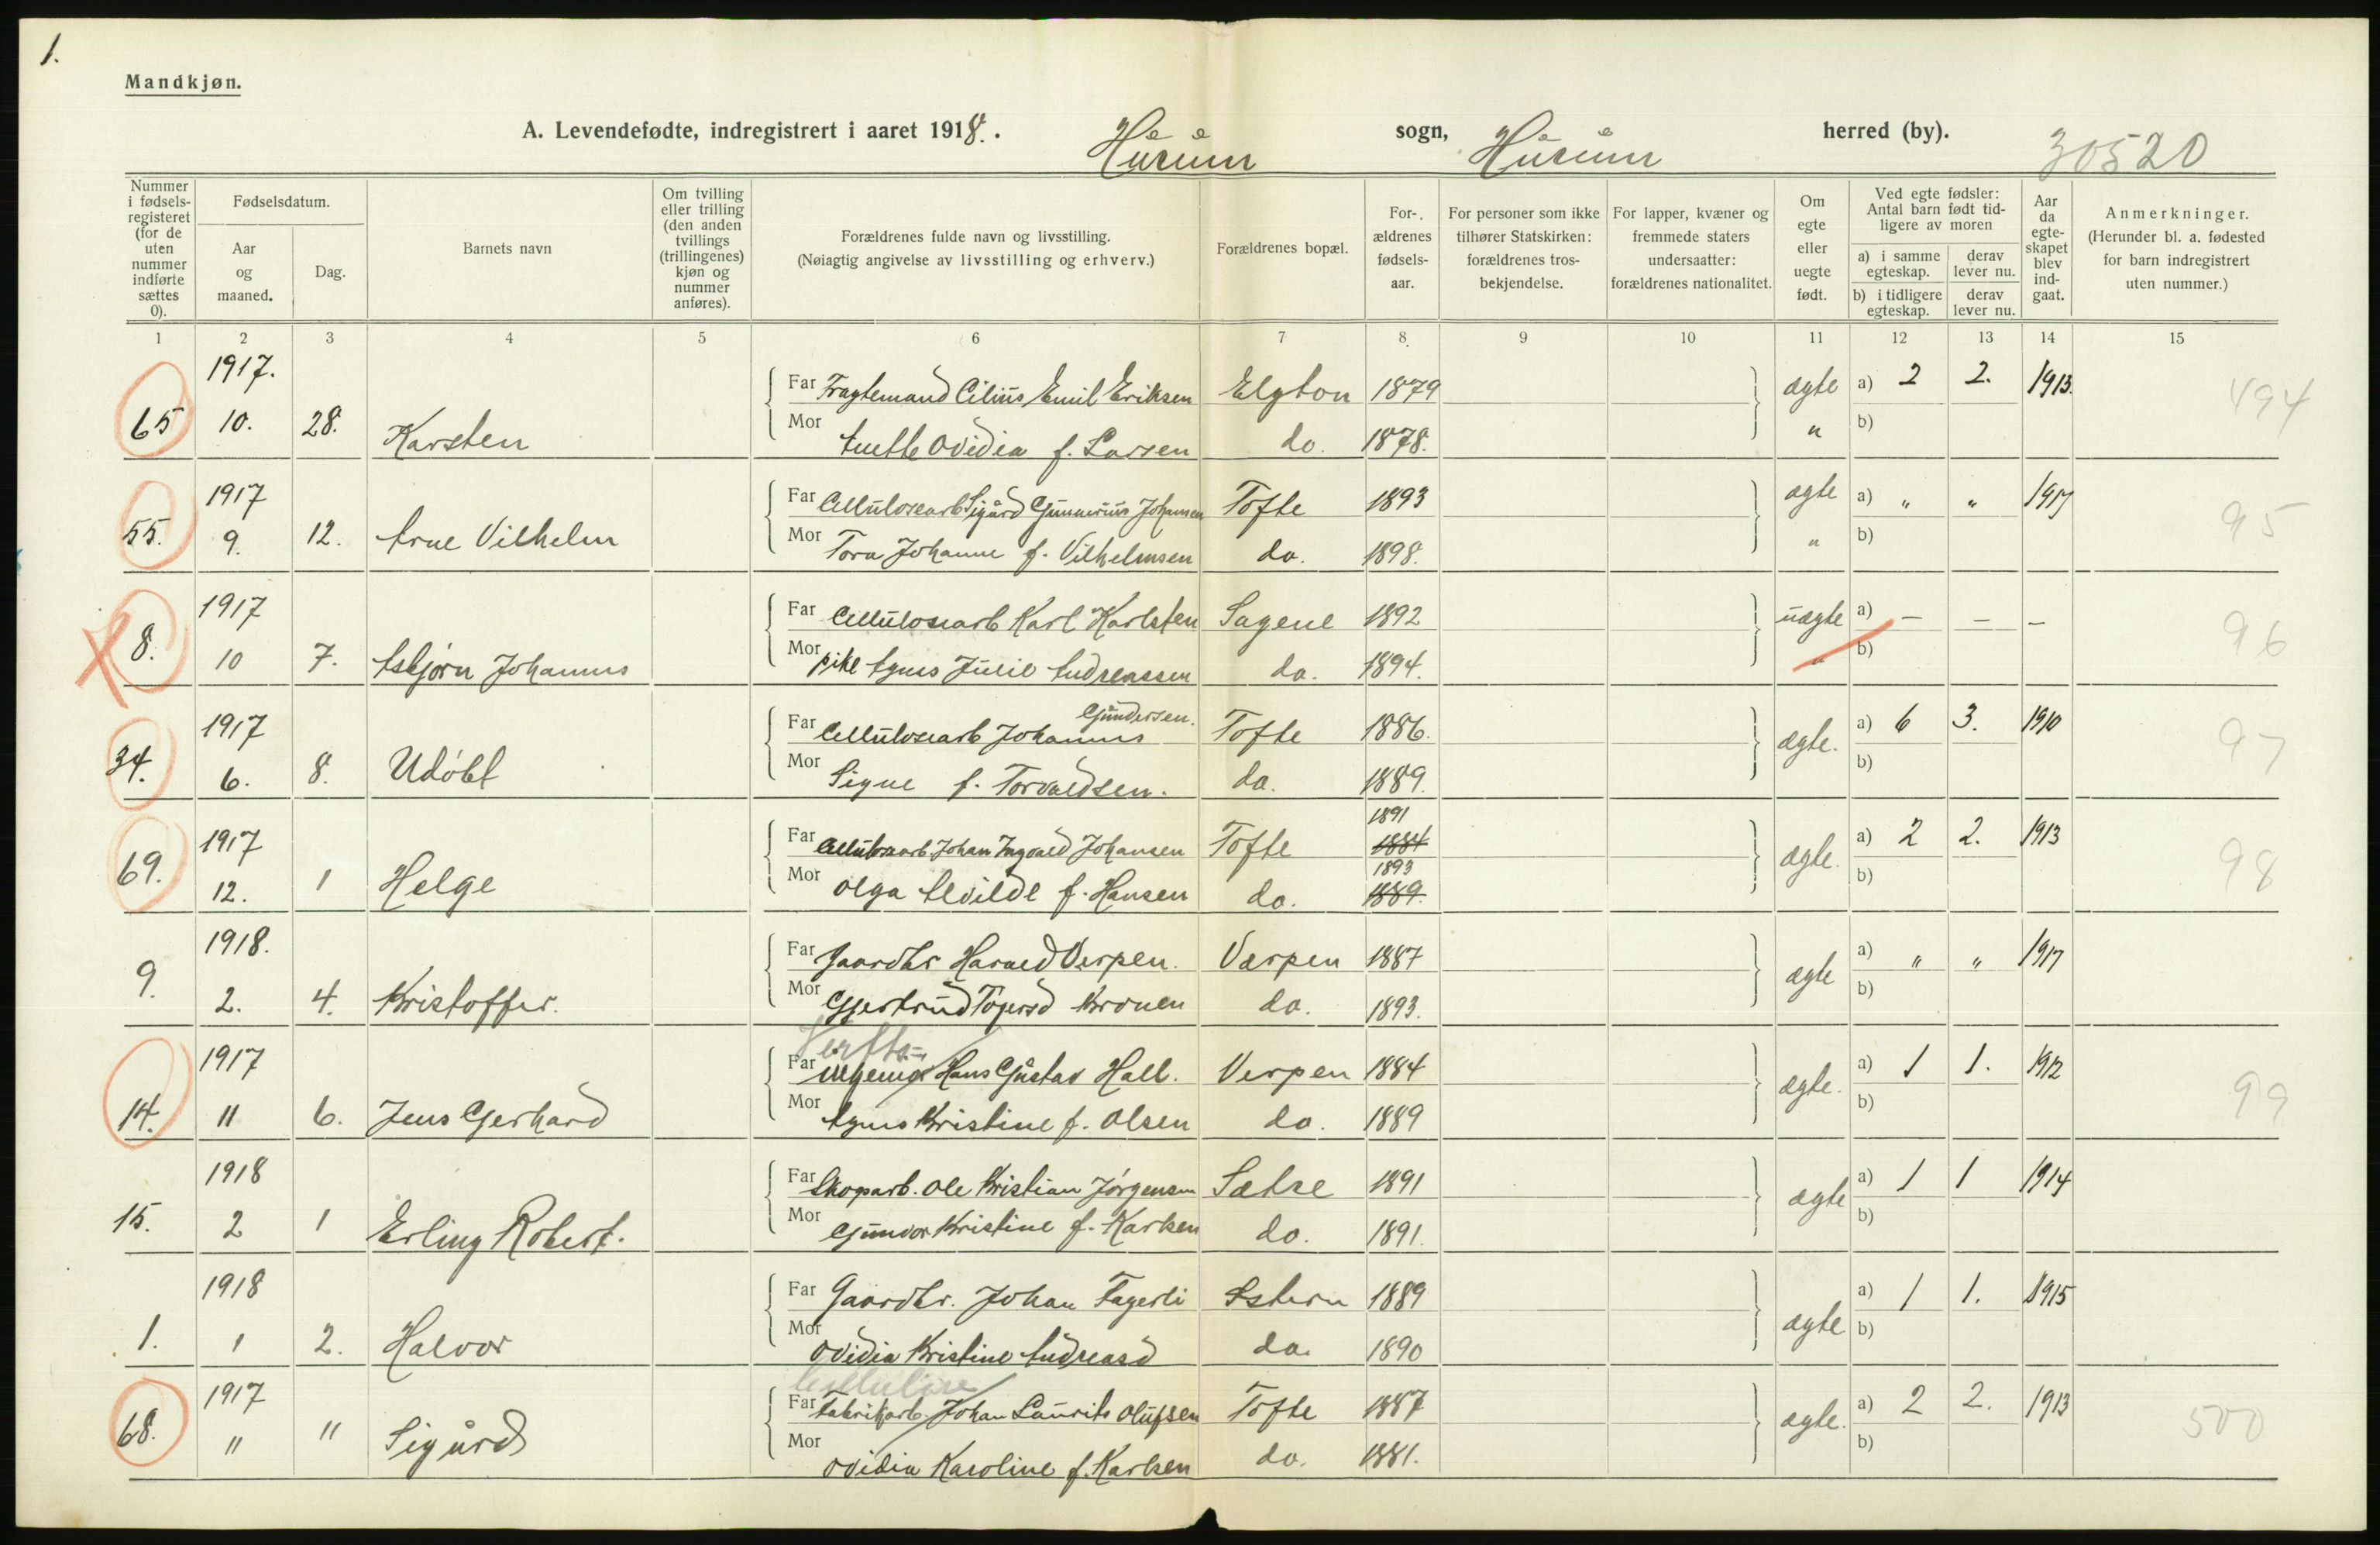 1.
Mandkjøn.
A. Levendefødte, indregistrert i aaret 1918. Hurum sogn, Hurum herred (by). 30520
Nummer i fødselsregisteret (for de uten nummer indførte sættes 0).
Fødselsdatum.
Aar og maaned.
Dag.
Barnets navn
Om tvilling eller trilling (den anden tvillings (trillingenes) kjøn og nummer anføres).
Forældrenes fulde navn og livsstilling.
(Nøiagtig angivelse av livsstilling og erhverv.)
Forældrenes bopæl.
For-ældrenes fødsels-aar.
For personer som ikke tilhører Statskirken: forældrenes tros-bekjendelse.
For lapper, kvæner og fremmede staters undersaatter: forældrenes nationalitet.
Om egte eller uegte født.
Ved egte fødsler: Antal barn født tid-ligere av moren
a) i samme egteskap.
derav lever nu.
b) i tidligere egteskap.
derav lever nu.
Aar da egte-skapet blev ind-gaat.
Anmerkninger.
(Herunder bl. a. fødested for barn indregistrert uten nummer.)
1 2 3 4 5 6 7 8 9 10 11 12 13 14 15
1917.
65 10. 28. Karsten
Far Fragtemand Cilius Emil Eriksen Elgton 1879 ægte a) 2 2. 1913. 494
Mor Anette Ovidia f. Larsen do. 1878. " b)
1917
55. 9. 12. Arne Vilhelm
Far Cellulosearb Sigurd Gunnerius Johansen Tofte 1893 ægte a) " " 1917 95
Mor Tora Johanne f. Vilhelmsen do. 1898. " b)
1917
8. 10 7. Asbjørn Johannes
Far Cellulosearb Karl Karlsten Sagene 1892 uægte a) – – – 96
Mor pike Agnes Julie Andreassen do. 1894. " b)
1917
34. 6. 8. Udøbt
Gundersen.
Far Cellulosearb Johannes Tofte 1886. ægte. a) 6 3. 1910 97
Mor Signe f. Torvaldsen. do. 1889. b)
1917
69. 12. 1 Helge
1891
Far Cellulosearb Johan Ingvald Johansen Tofte 1884 ægte. a) 2 2. 1913 98
1893
Mor Olga Alvilde f. Hansen do. 1889. b)
1918.
9. 2. 4. Kristoffer.
Far Gaardbr Harald Verpen. Værpen 1887 ægte a) " " 1917
Mor Gjertrud Togersd Kronen do. 1893. b)
1917
14. 11 6. Jens Gerhard
Far Hans Gustav Hall. Verpen 1884 ægte. a) 1 1. 1912 99
Mor Agnes Kristine f. Olsen do. 1889 b)
1918
15. 2 1 Erling Robert.
Far Skogarb. Ole Kristian Jørgensen Sætre 1891 ægte a) 1 1 1914
Mor Gunvor Kristine f. Karlsen do. 1891. b)
1918
1. 1 2. Halvor
Far Gaardbr. Johan Fagerli 1889 ægte a) 1 1. 1915
Mor Ovidia Kristine Andreasd do. 1890 b)
1917
68. " " Sigurd
Cellulose
Far Fabrikarb. Johan Laurits Olufsen Tofte 1887 ægte. a) 2 2. 1913 500
Mor Ovidia Karoline f. Karlsen do. 1881. b)